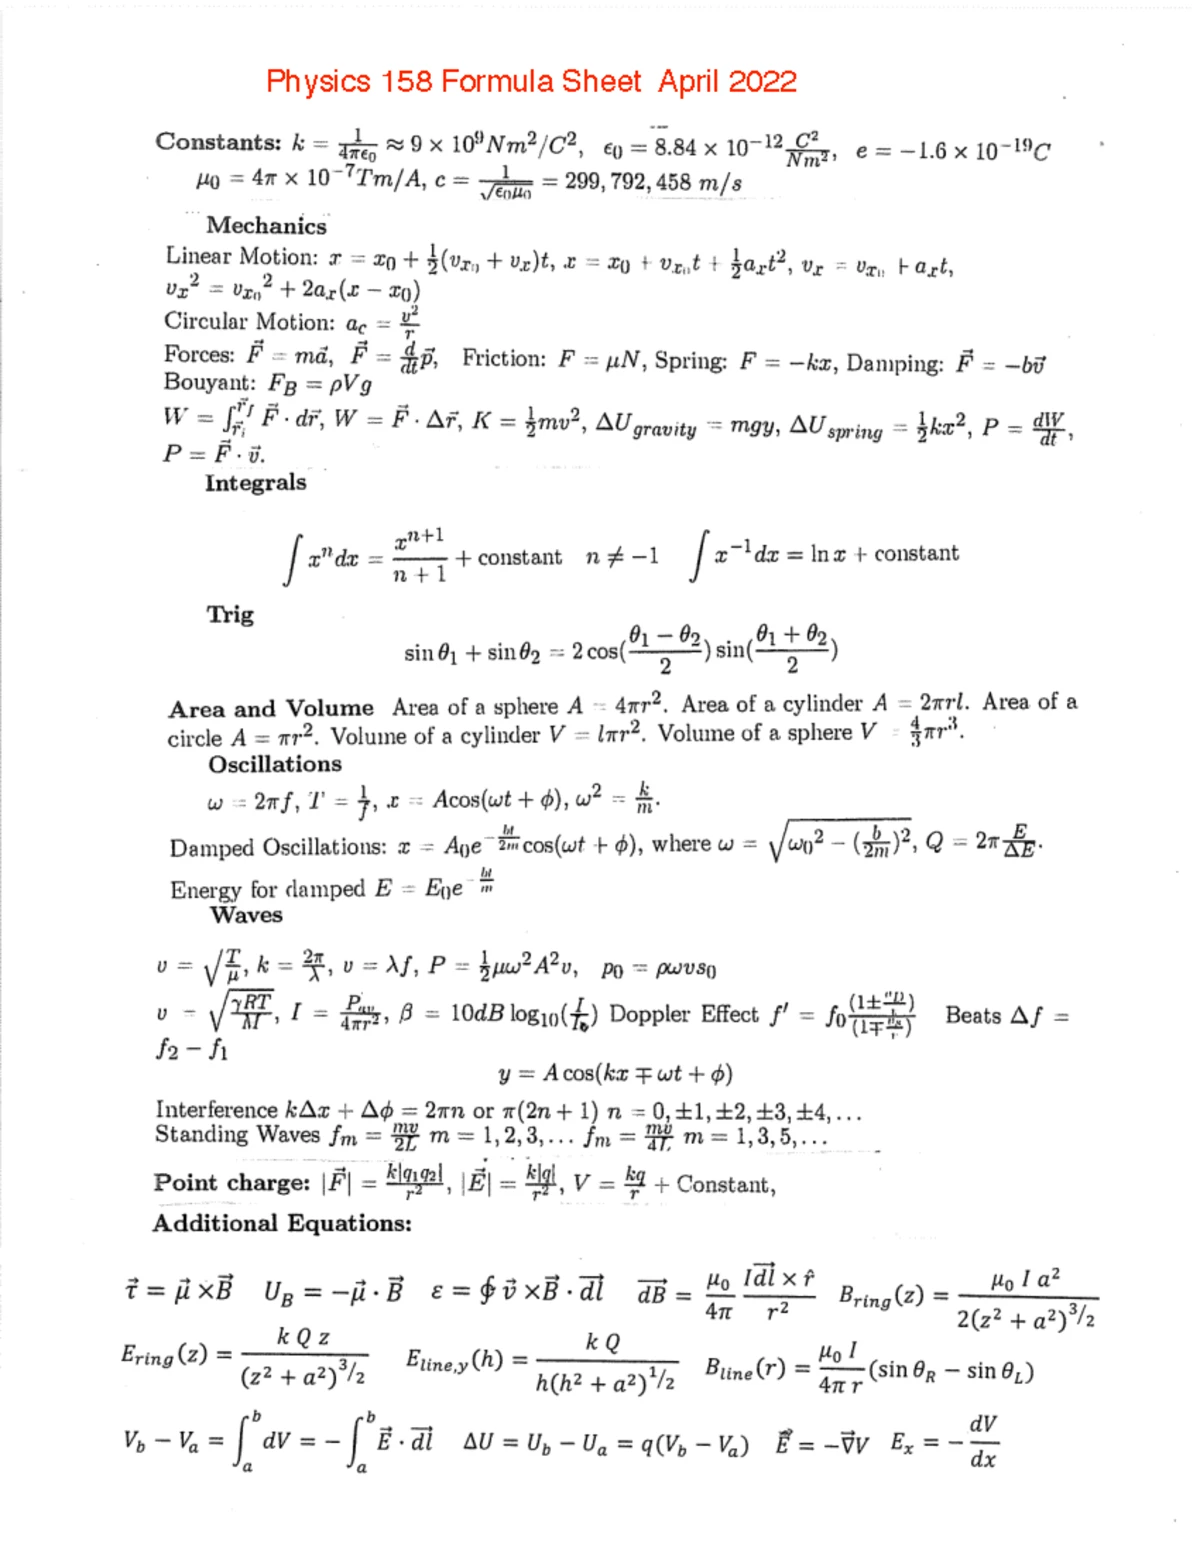 Physics 158 Formula Sheet April 2022
Constants: k = 1/(4πϵ₀) ≈ 9 × 10⁹Nm²/C², ϵ₀ = 8.84 × 10⁻¹² C²/Nm², e = −1.6 × 10⁻¹⁹C
μ₀ = 4π × 10⁻⁷Tm/A, c = 1/√(ϵ₀μ₀) = 299,792,458 m/s
Mechanics
Linear Motion: x = x₀ + ½(vₓ₀ + vₓ)t, x = x₀ + vₓ₀t + ½aₓt², vₓ = vₓ₀ + aₓt,
vₓ² = vₓ₀² + 2aₓ(x − x₀)
Circular Motion: a_c = v²/r
Forces: F⃗ = ma⃗, F⃗ = d/dt p⃗, Friction: F = μN, Spring: F = −kx, Damping: F⃗ = −bv⃗
Bouyant: F_B = ρVg
W = ∫_{r⃗_i}^{r⃗_f} F⃗ · dr⃗, W = F⃗ · Δr⃗, K = ½mv², ΔU_gravity = mgy, ΔU_spring = ½kx², P = dW/dt,
P = F⃗ · v⃗.
Integrals
∫ xⁿdx = xⁿ⁺¹/(n + 1) + constant n ≠ −1 ∫ x⁻¹dx = ln x + constant
Trig
sin θ₁ + sin θ₂ = 2 cos((θ₁ − θ₂)/2) sin((θ₁ + θ₂)/2)
Area and Volume Area of a sphere A = 4πr². Area of a cylinder A = 2πrl. Area of a
circle A = πr². Volume of a cylinder V = lπr². Volume of a sphere V = 4/3πr³.
Oscillations
ω = 2πf, T = 1/f, x = Acos(ωt + ϕ), ω² = k/m.
Damped Oscillations: x = A₀e^(−bt/2m)cos(ωt + ϕ), where ω = √(ω₀² − (b/2m)²), Q = 2π E/ΔE.
Energy for damped E = E₀e^(−bt/m)
Waves
v = √(T/μ), k = 2π/λ, v = λf, P = ½μω²A²v, p₀ = ρωvs₀
v = √(γRT/M), I = P_av/(4πr²), β = 10dB log₁₀(I/I₀) Doppler Effect f′ = f₀(1±v_D/v)/(1∓v_s/v) Beats Δf =
f₂ − f₁
y = A cos(kx ∓ ωt + ϕ)
Interference kΔx + Δϕ = 2πn or π(2n + 1) n = 0, ±1, ±2, ±3, ±4, …
Standing Waves f_m = mv/2L m = 1, 2, 3, … f_m = mv/4L m = 1, 3, 5, …
Point charge: |F⃗| = k|q₁q₂|/r², |E⃗| = k|q|/r², V = kq/r + Constant,
Additional Equations:
τ⃗ = μ⃗ ×B⃗ U_B = −μ⃗ · B⃗ ε = ∮ v⃗ ×B⃗ · dl⃗ dB⃗ = μ₀/4π Idl⃗ × r̂/r² B_ring(z) = μ₀ I a²/(2(z² + a²)^(3/2))
E_ring(z) = k Q z/(z² + a²)^(3/2) E_line,y(h) = k Q/(h(h² + a²)^(1/2)) B_line(r) = μ₀ I/(4π r) (sin θ_R − sin θ_L)
V_b − V_a = ∫_a^b dV = − ∫_a^b E⃗ · dl⃗ ΔU = U_b − U_a = q(V_b − V_a) E⃗ = −∇⃗V E_x = − dV/dx